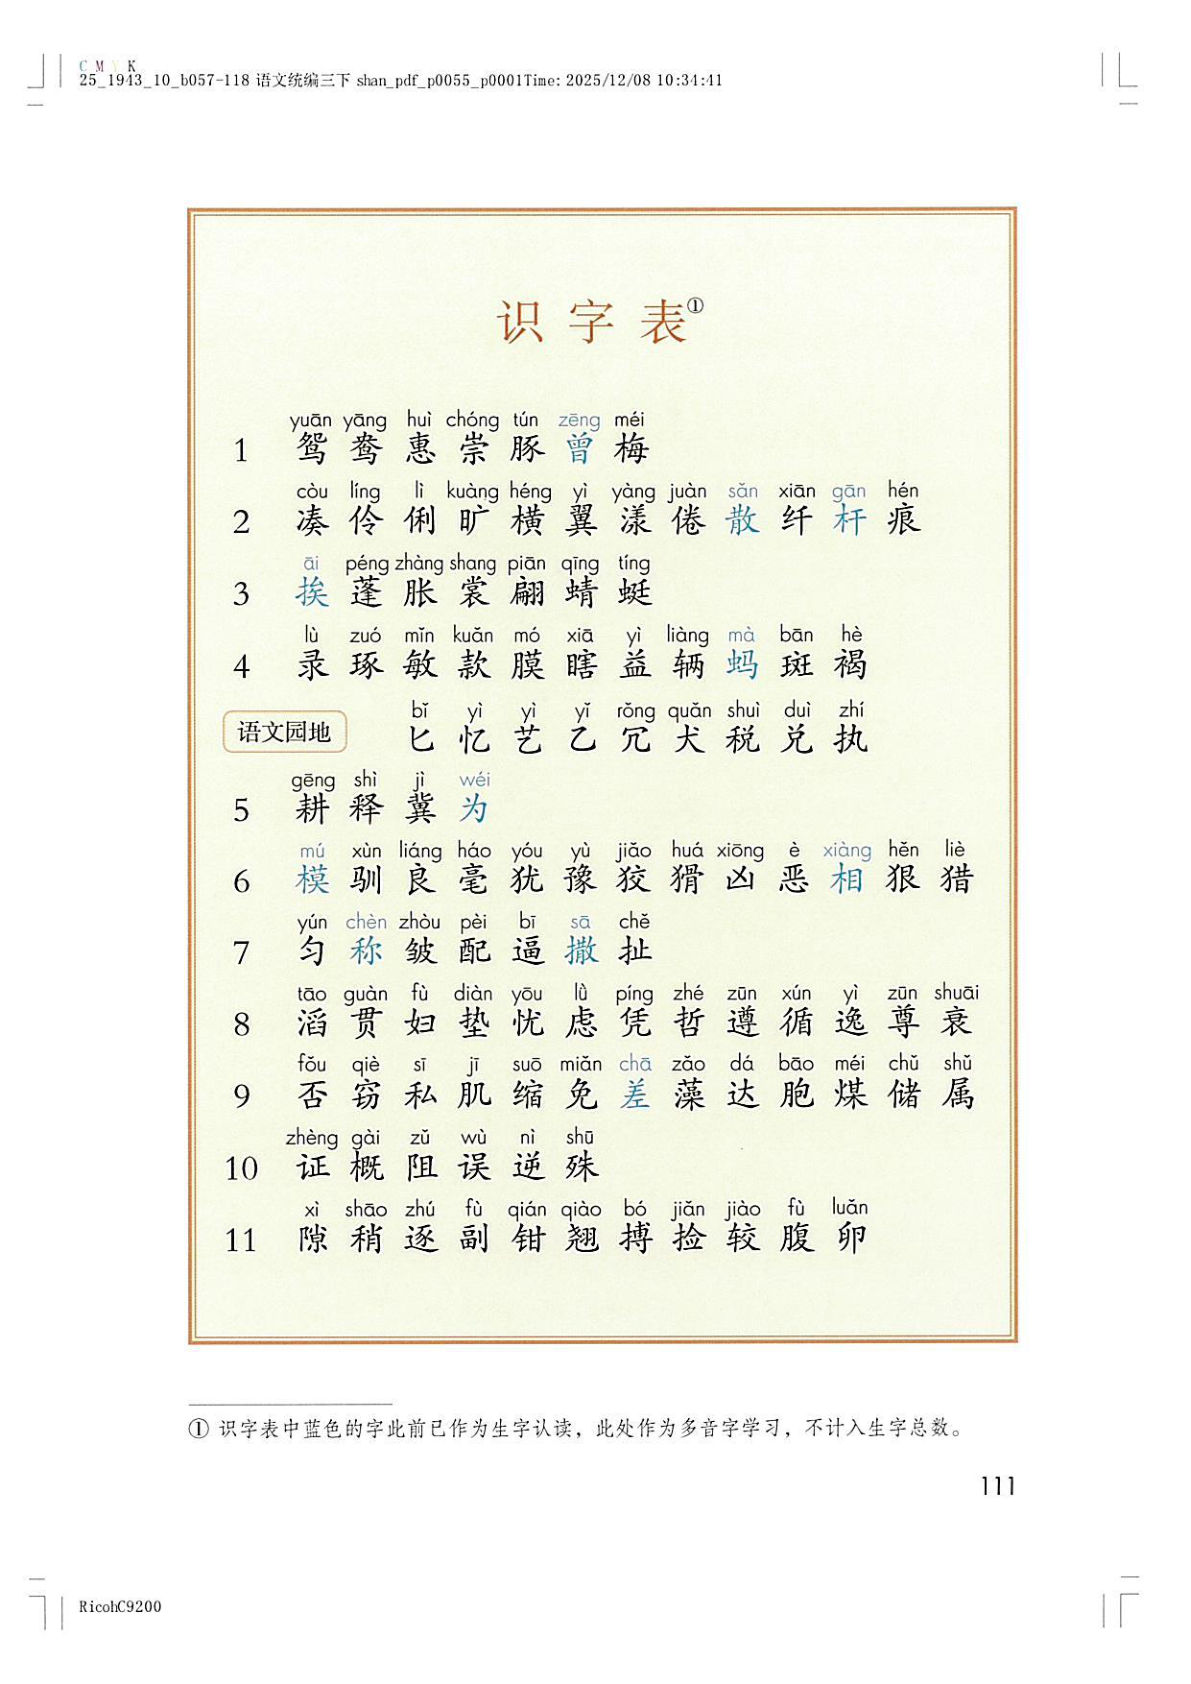 C M Y K
25_1943_10_b057-118 语文统编三下 shan_pdf_p0055_p0001Time: 2025/12/08 10:34:41
识字表①
yuān yāng huì chóng tún zēng méi
1 鸳 鸯 惠 崇 豚 曾 梅
còu líng lì kuàng héng yì yàng juàn sǎn xiān gān hén
2 凑 伶 俐 旷 横 翼 漾 倦 散 纤 杆 痕
āi péng zhàng shang piān qīng tíng
3 挨 蓬 胀 裳 翩 蜻 蜓
lù zuó mǐn kuǎn mó xiā yì liàng mà bān hè
4 录 琢 敏 款 膜 瞎 益 辆 蚂 斑 褐
bǐ yì yì yǐ rǒng quǎn shuì duì zhí
语文园地 匕 忆 艺 乙 冗 犬 税 兑 执
gēng shì jì wéi
5 耕 释 冀 为
mú xùn liáng háo yóu yù jiǎo huá xiōng è xiàng hěn liè
6 模 驯 良 毫 犹 豫 狡 猾 凶 恶 相 狠 猎
yún chèn zhòu pèi bī sā chě
7 匀 称 皱 配 逼 撒 扯
tāo guàn fù diàn yōu lǜ píng zhé zūn xún yì zūn shuāi
8 滔 贯 妇 垫 忧 虑 凭 哲 遵 循 逸 尊 衰
fǒu qiè sī jī suō miǎn chā zǎo dá bāo méi chǔ shǔ
9 否 窃 私 肌 缩 免 差 藻 达 胞 煤 储 属
zhèng gài zǔ wù nì shū
10 证 概 阻 误 逆 殊
xì shāo zhú fù qián qiào bó jiǎn jiào fù luǎn
11 隙 稍 逐 副 钳 翘 搏 捡 较 腹 卵
① 识字表中蓝色的字此前已作为生字认读，此处作为多音字学习，不计入生字总数。
111
RicohC9200